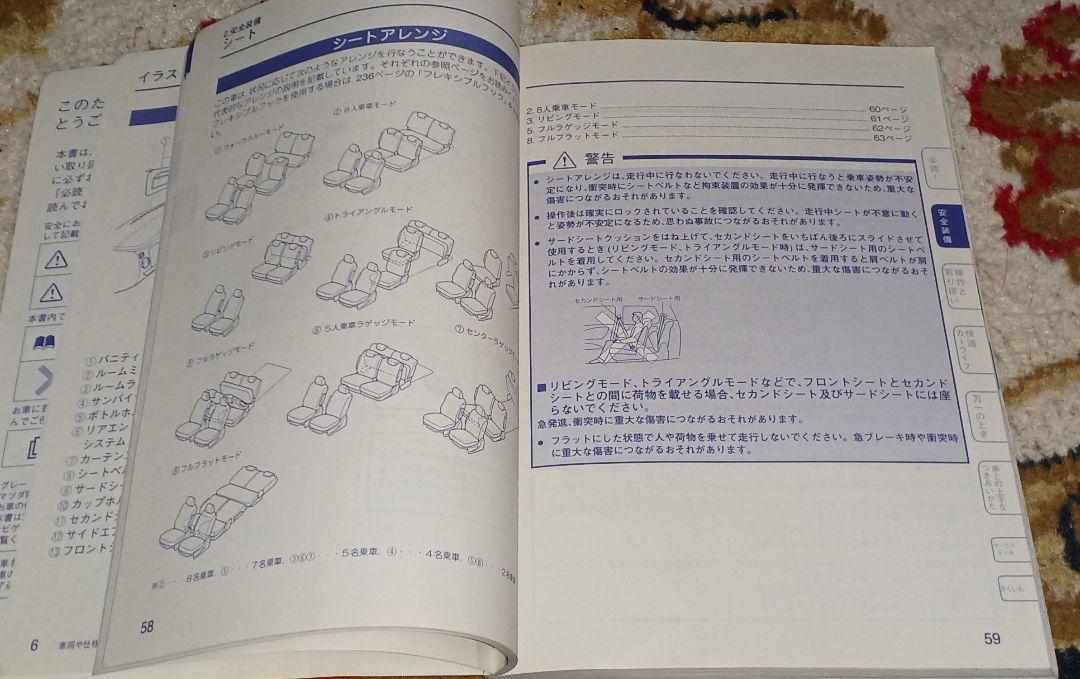 イラス
このた
とうご
本書は、
い取り
に必ず
「必読
読んで
安全にお
して記載
本書内で
お車に
んでご
グレー
マツダ
お車の
本書は
①バニティ
②ルームミ
③ルームラ
④サンバイ
⑤ボトルホ
⑥リアエン
システム
⑦カーテン
⑧シートベ
⑨サードシ
⑩カップホ
⑪セカンド
⑫サイドエ
⑬フロント
6
車両や仕様
2.安全装備
シート
シートアレンジ
この車は、状況に応じて次のようなアレンジを行なうことができます。下記
代表的なアレンジの説明を記載しています。それぞれの参照ページをお読み
フレキシブルフックを使用する場合は、236ページの「フレキシブルフック」を
い。
①ウォークスルーモード
②8人乗車モード
③リビングモード
④トライアングルモード
⑤フルラゲッジモード
⑥5人乗車ラゲッジモード
⑦センターラゲッジ
⑧フルフラットモード
※②・・・8名乗車、①・・・7名乗車、③⑥⑦・・・5名乗車、④・・・4名乗車、⑤⑧・・・2名乗車
58
2. 8人乗車モード 60ページ
3. リビングモード 61ページ
5. フルラゲッジモード 62ページ
8. フルフラットモード 63ページ
警告
● シートアレンジは、走行中に行なわないでください。走行中に行なうと乗車姿勢が不安
定になり、衝突時にシートベルトなど拘束装置の効果が十分に発揮できないため、重大な
傷害につながるおそれがあります。
● 操作後は確実にロックされていることを確認してください。走行中シートが不意に動く
と姿勢が不安定になるため、思わぬ事故につながるおそれがあります。
● サードシートクッションをはね上げて、セカンドシートをいちばん後ろにスライドさせて
使用するとき(リビングモード、トライアングルモード時)は、サードシート用のシートベ
ルトを着用してください。セカンドシート用のシートベルトを着用すると肩ベルトが肩
にかからず、シートベルトの効果が十分に発揮できないため、重大な傷害につながるおそ
れがあります。
セカンドシート用 サードシート用
■リビングモード、トライアングルモードなどで、フロントシートとセカンド
シートとの間に荷物を載せる場合、セカンドシート及びサードシートには座
らないでください。
急発進、衝突時に重大な傷害につながるおそれがあります。
● フラットにした状態で人や荷物を乗せて走行しないでください。急ブレーキ時や衝突時
に重大な傷害につながるおそれがあります。
必読
安全装備
操作と
取り扱い
快適
カーライフ
万一のとき
車との上手な
つきあいかた
サービス
データ
さくいん
59